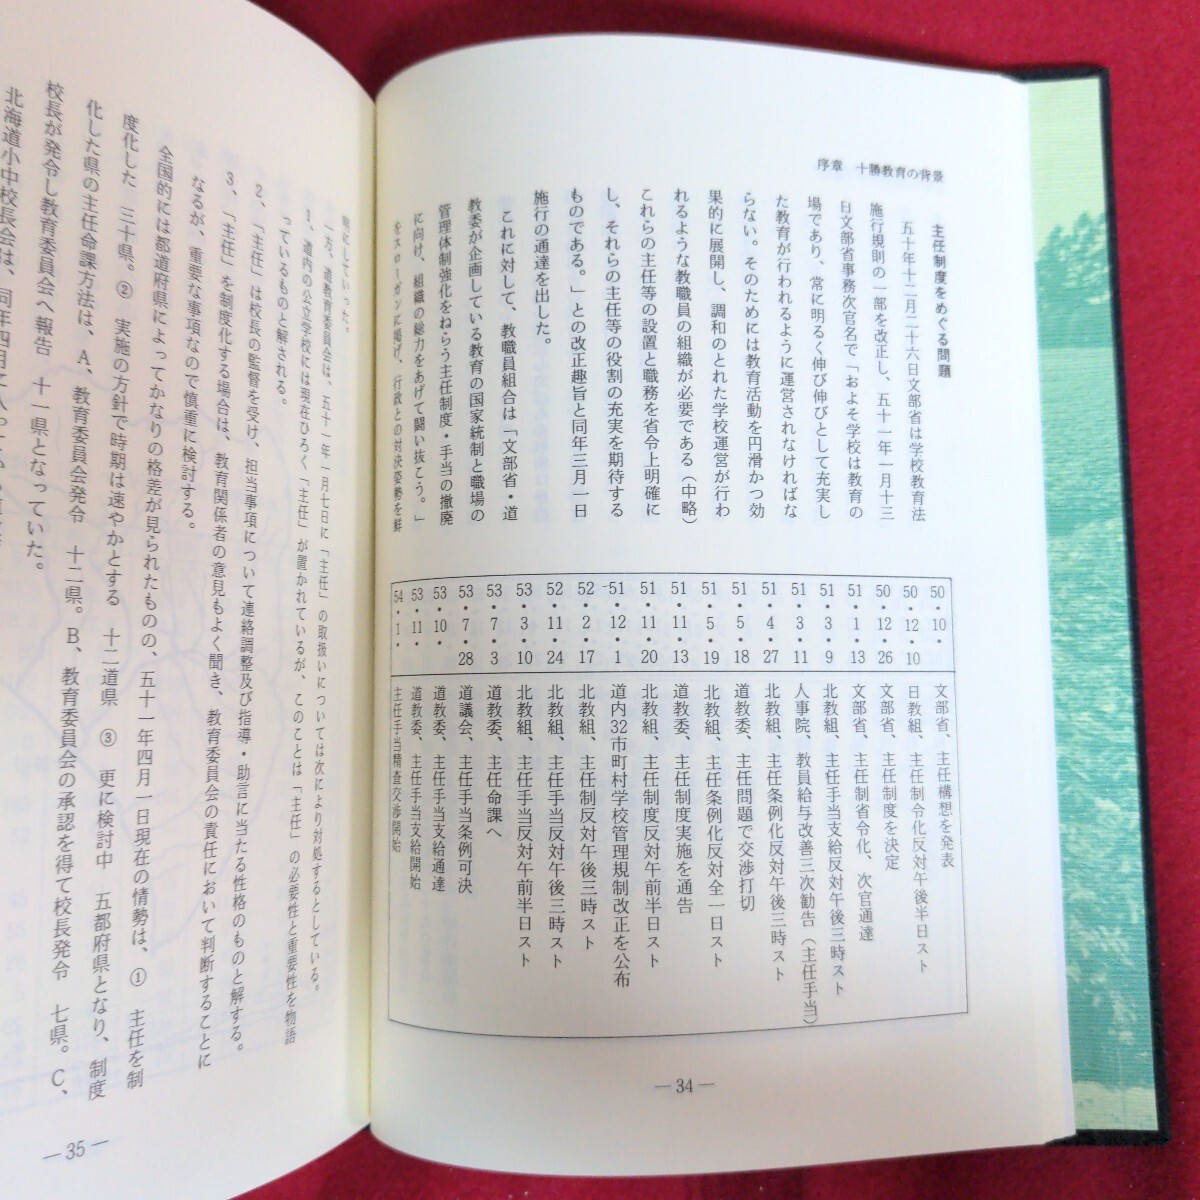 序章　十勝教育の背景
主任制度をめぐる問題
五十年十二月二十六日文部省は学校教育法
施行規則の一部を改正し、五十一年一月十三
日文部省事務次官名で「およそ学校は教育の
場であり、常に明るく伸び伸びとして充実し
た教育が行われるように運営されなければな
らない。そのためには教育活動を円滑かつ効
果的に展開し、調和のとれた学校運営が行わ
れるような教職員の組織が必要である（中略）
これらの主任等の設置と職務を省令上明確に
し、それらの主任等の役割の充実を期待する
ものである。」との改正趣旨と同年三月一日
施行の通達を出した。
これに対して、教職員組合は「文部省・道
教委が企画している教育の国家統制と職場の
管理体制強化をねらう主任制度・手当の撤廃
に向け、組織の総力をあげて闘い抜こう。」
をスローガンに掲げ、行政との対決姿勢を鮮
50・10・　文部省、主任構想を発表
50・12・10　日教組、主任制令化反対午後半日スト
50・12・26　文部省、主任制度を決定
51・1・13　文部省、主任制省令化、次官通達
51・3・9　北教組、主任手当支給反対午後三時スト
51・3・11　人事院、教員給与改善三次勧告（主任手当）
51・4・27　北教組、主任条例化反対午後三時スト
51・5・18　道教委、主任問題で交渉打切
51・5・19　北教組、主任条例化反対全一日スト
51・11・13　道教委、主任制度実施を通告
51・11・20　北教組、主任制度反対午前半日スト
51・12・1　道内32市町村学校管理規則改正を公布
52・2・17　北教組、主任制反対午後三時スト
52・11・24　北教組、主任手当反対午後三時スト
53・3・10　北教組、主任手当反対午前半日スト
53・7・3　道教委、主任命課へ
53・7・28　道議会、主任手当条例可決
53・10・　道教委、主任手当支給通達
53・11・　道教委、主任手当支給開始
54・1・　主任手当精査交渉開始
―34―
明にしていった。
一方、道教育委員会は、五十一年一月七日に「主任」の取扱いについては次により対処するとしている。
1、道内の公立学校には現在ひろく「主任」が置かれているが、このことは「主任」の必要性と重要性を物語
っているものと解される。
2、「主任」は校長の監督を受け、担当事項について連絡調整及び指導・助言に当たる性格のものと解する。
3、「主任」を制度化する場合は、教育関係者の意見もよく聞き、教育委員会の責任において判断することに
なるが、重要な事項なので慎重に検討する。
全国的には都道府県によってかなりの格差が見られたものの、五十一年四月一日現在の情勢は、①　主任を制
度化した　三十県。②　実施の方針で時期は速やかとする　十二道県　③　更に検討中　五都府県となり、制度
化した県の主任命課方法は、A、教育委員会発令　十二県。B、教育委員会の承認を得て校長発令　七県。C、
校長が発令し教育委員会へ報告　十一県となっていた。
北海道小中校長会は、同年四月に入って
―35―